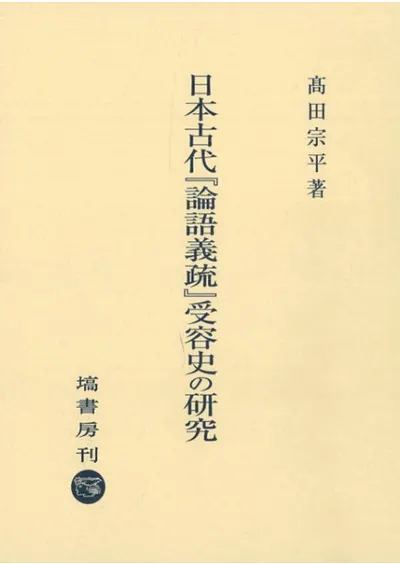 髙田宗平著
日本古代『論語義疏』受容史の研究
塙書房刊